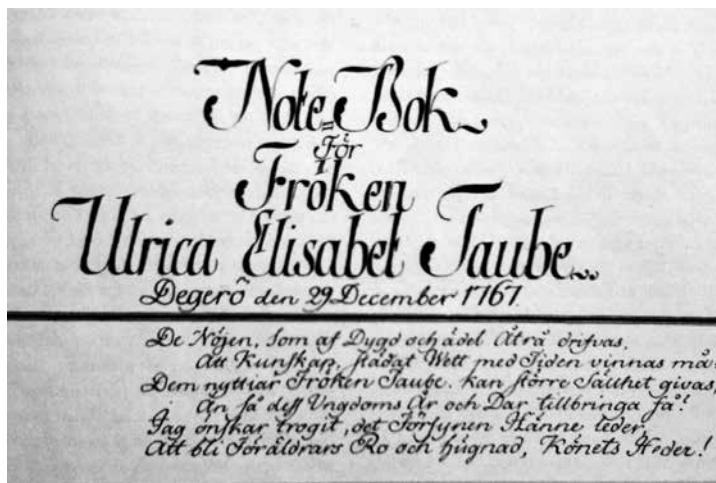 Note-Bok
För
Fröken
Ulrica Elisabet Taube
Degerö den 29 December 1767.
De Nöjen, som af Dygd och ädel Åtrå drifvas,
Att Kunskap, städat Wett med Tiden vinnas må
Dem nyttiar Fröken Taube. kan större Sällhet givas,
Än få dess Ungdoms År och Dar tillbringa så!
Jag önskar trogit, det Försynen Hänne leder,
Att bli Föräldrars Ro och hugnad, Könets Heder!